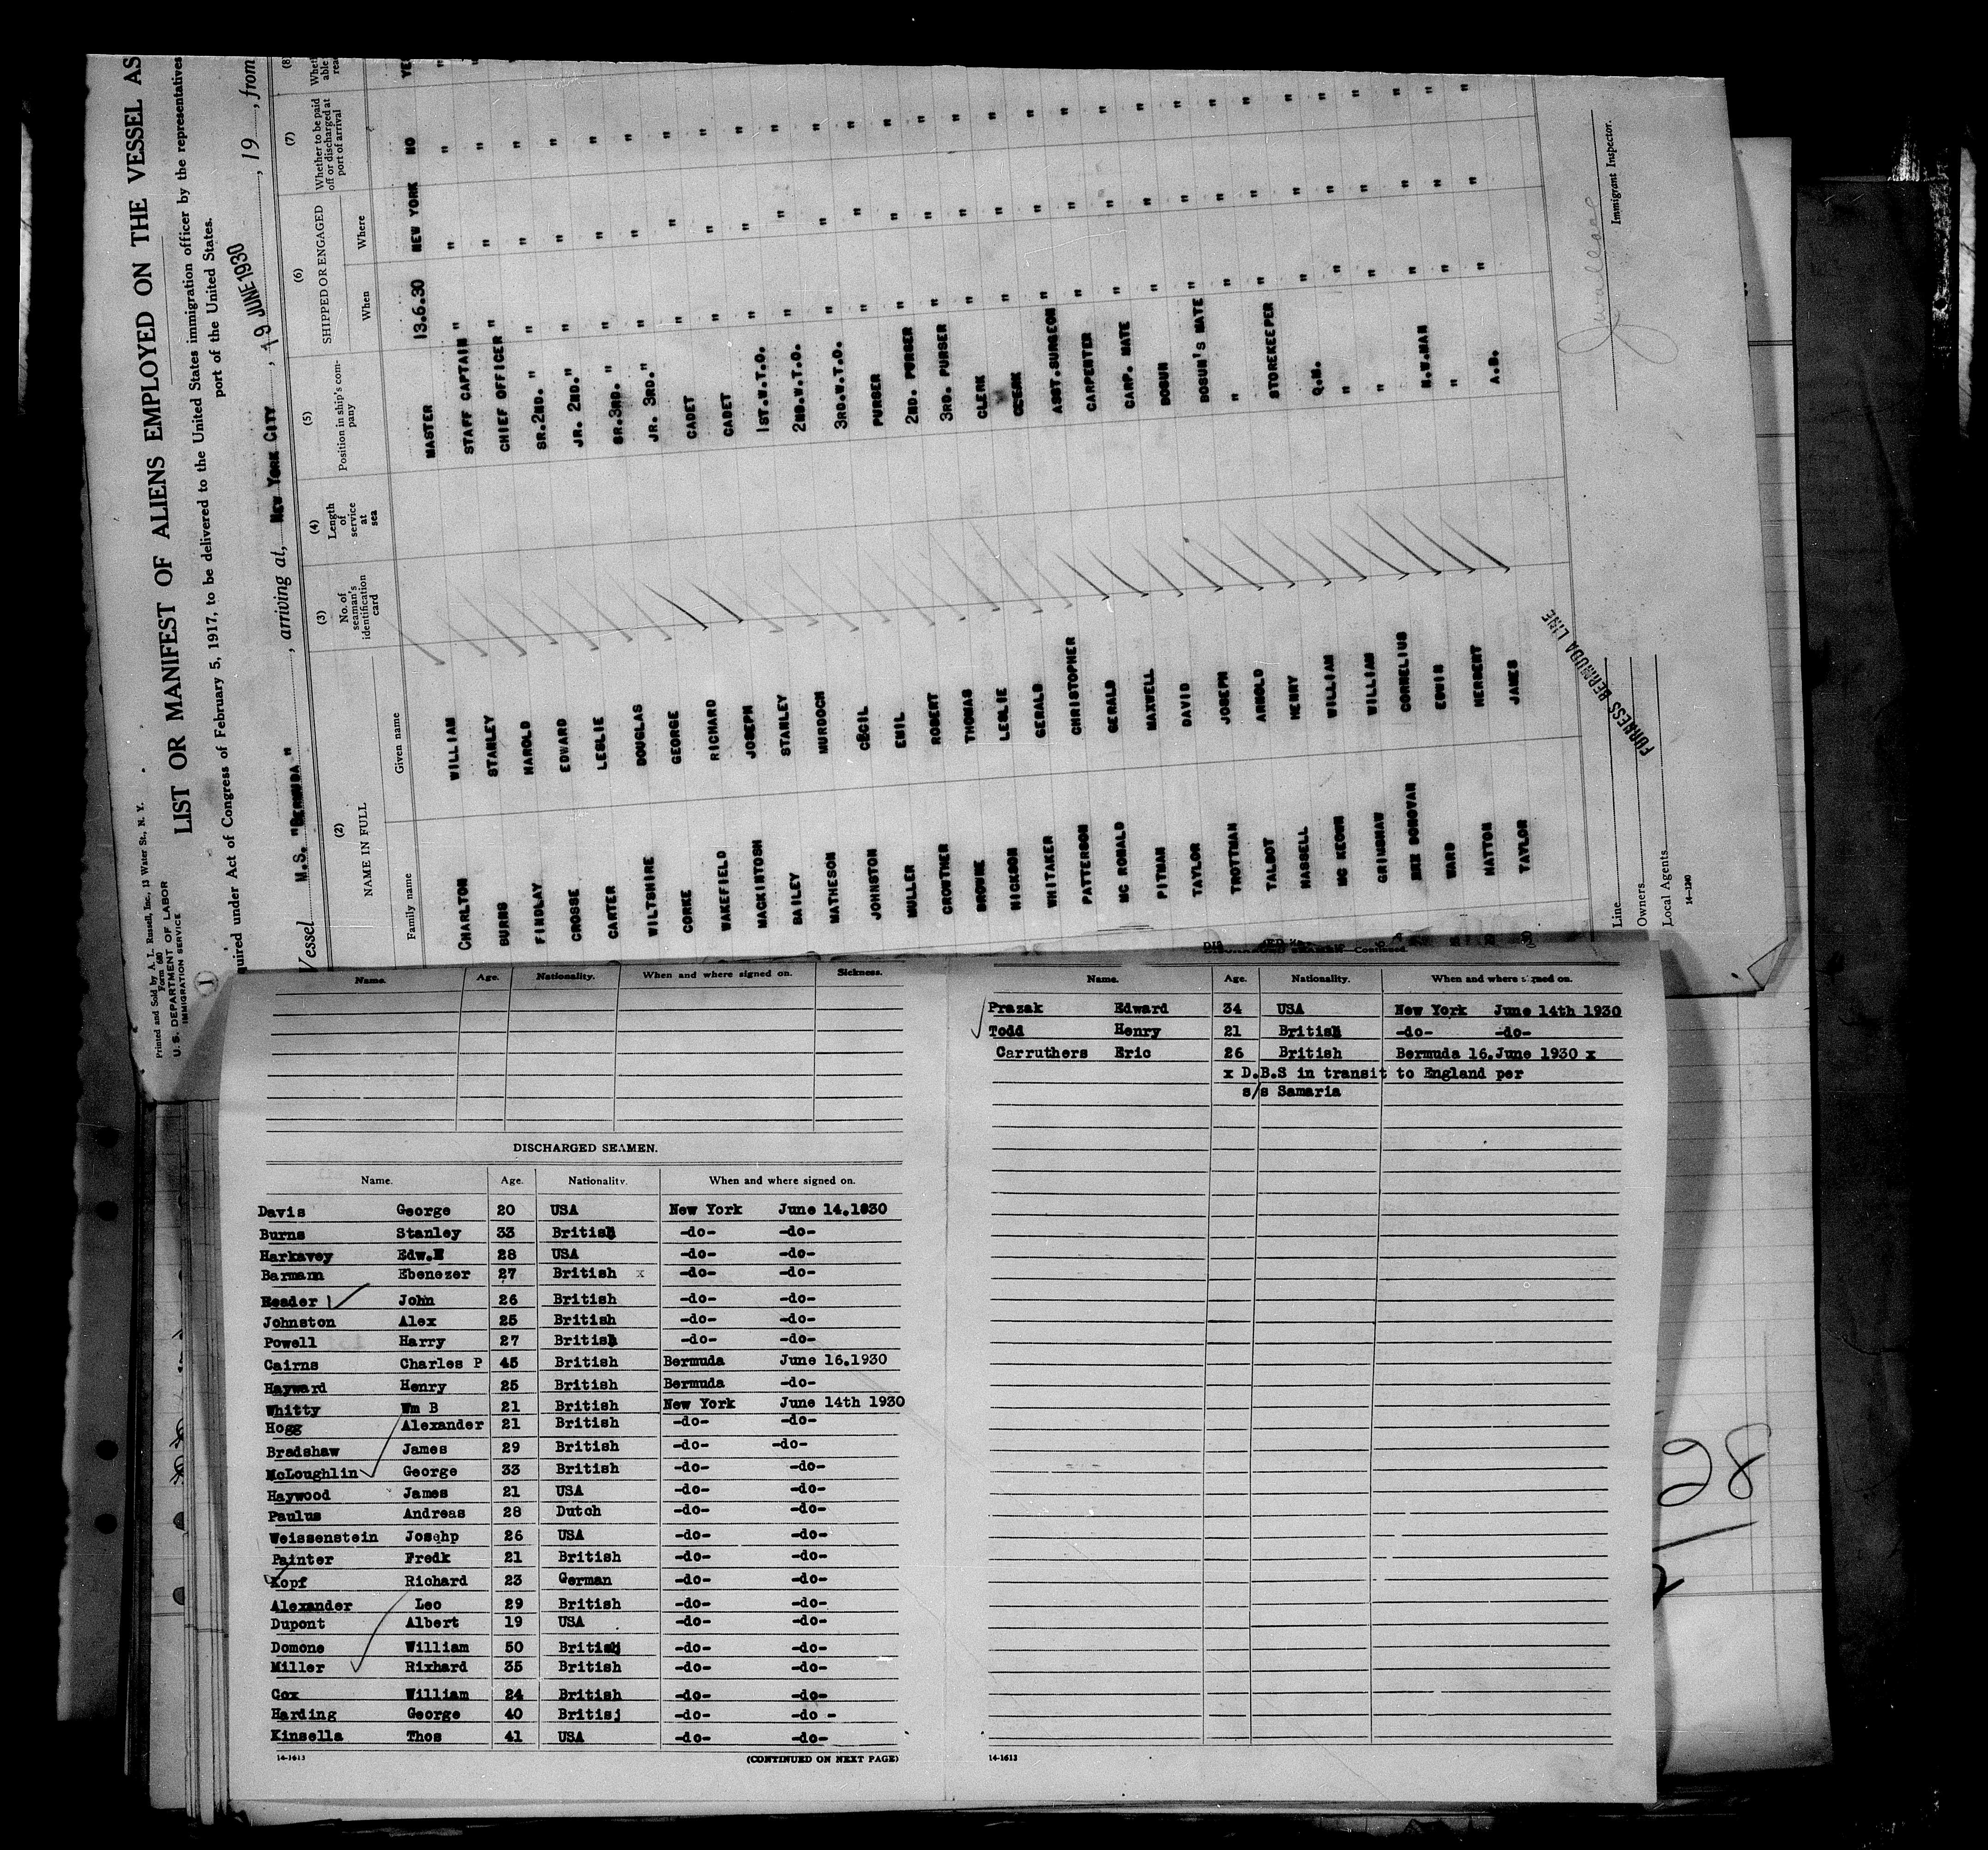 Printed and Sold by A. L. Russell, Inc., 13 Water St., N. Y.
Form 680
U. S. DEPARTMENT OF LABOR
IMMIGRATION SERVICE
1
LIST OR MANIFEST OF ALIENS EMPLOYED ON THE VESSEL AS
quired under Act of Congress of February 5, 1917, to be delivered to the United States immigration officer by the representatives
port of the United States.
Vessel M.S. "BERMUDA", arriving at, NEW YORK CITY, 19 JUNE 1930, 19, from
(2) (3) (4) (5) (6) (7) (8)
NAME IN FULL
Family name Given name
No. of seaman's identification card
Length of service at sea
Position in ship's company
SHIPPED OR ENGAGED
When Where
Whether to be paid off or discharged at port of arrival
CHARLTON WILLIAM MASTER 13.6.30 NEW YORK NO YES
BURNS STANLEY STAFF CAPTAIN " " " "
FINDLAY HAROLD CHIEF OFFICER " " " "
CROSSE EDWARD SR.2ND. " " " "
CARTER LESLIE JR. 2ND. " " " "
WILTSHIRE DOUGLAS SR.3RD. " " " "
CORKE GEORGE JR. 3RD. " " " "
WAKEFIELD RICHARD CADET " " "
MACKINTOSH JOSEPH CADET " " "
BAILEY STANLEY 1ST.W.T.O. " " "
MATHESON MURDOCH 2ND.W.T.O. " " "
JOHNSTON CECIL 3RD.W.T.O. " " "
MULLER EMIL PURSER " " "
CROWTHER ROBERT 2ND. PURSER " " "
BROWNE THOMAS 3RD. PURSER " " "
HICKSON LESLIE CLERK " " "
WHITAKER GERALD CLERK " " "
PATTERSON CHRISTOPHER ASST.SURGEON " " "
MC RONALD GERALD CARPENTER " " "
PITMAN MAXWELL CARP. MATE " " "
TAYLOR DAVID BOSUN " " "
TROTTMAN JOSEPH BOSUN'S MATE " " "
TALBOT ARNOLD " " " "
HASSELL HENRY STOREKEEPER " " "
MC KEOWN WILLIAM Q.M. " " "
GRIMSHAW WILLIAM " " " "
DONOVAN CORNELIUS " " " "
WARD EDWIN N.W.MAN " " "
HATTON HERBERT " " " "
TAYLOR JAMES A.B. " " "
Line
FURNESS BERMUDA LINE
Owners
Local Agents
14-1240
Immigrant Inspector.
Name. Age. Nationality. When and where signed on. Sickness.
DISCHARGED SEAMEN.
Name. Age. Nationality. When and where signed on.
Davis George 20 USA New York June 14.1930
Burns Stanley 33 British -do- -do-
Harkavey Edw.E 28 USA -do- -do-
Barmann Ebenezer 27 British x -do- -do-
Reader John 26 British -do- -do-
Johnston Alex 25 British -do- -do-
Powell Harry 27 British -do- -do-
Cairns Charles P 45 British Bermuda June 16.1930
Hayward Henry 25 British Bermuda -do-
Whitty Wm B 21 British New York June 14th 1930
Hogg Alexander 21 British -do- -do-
Bradshaw James 29 British -do- -do-
McLoughlin George 33 British -do- -do-
Haywood James 21 USA -do- -do-
Paulus Andreas 28 Dutch -do- -do-
Weissenstein Josehp 26 USA -do- -do-
Painter Fredk 21 British -do- -do-
Kopf Richard 23 German -do- -do-
Alexander Leo 29 British -do- -do-
Dupont Albert 19 USA -do- -do-
Domone William 50 British -do- -do-
Miller Rixhard 35 British -do- -do-
Cox William 24 British -do- -do-
Harding George 40 Britisj -do- -do -
Kinsella Thos 41 USA -do- -do-
14-1613 (CONTINUED ON NEXT PAGE)
DISCHARGED SEAMEN—Continued.
Name. Age. Nationality. When and where signed on.
Prazak Edward 34 USA New York June 14th 1930
Todd Henry 21 British -do- -do-
Carruthers Eric 26 British Bermuda 16.June 1930 x
x D.B.S in transit to England per
s/s Samaria
14-1613
28